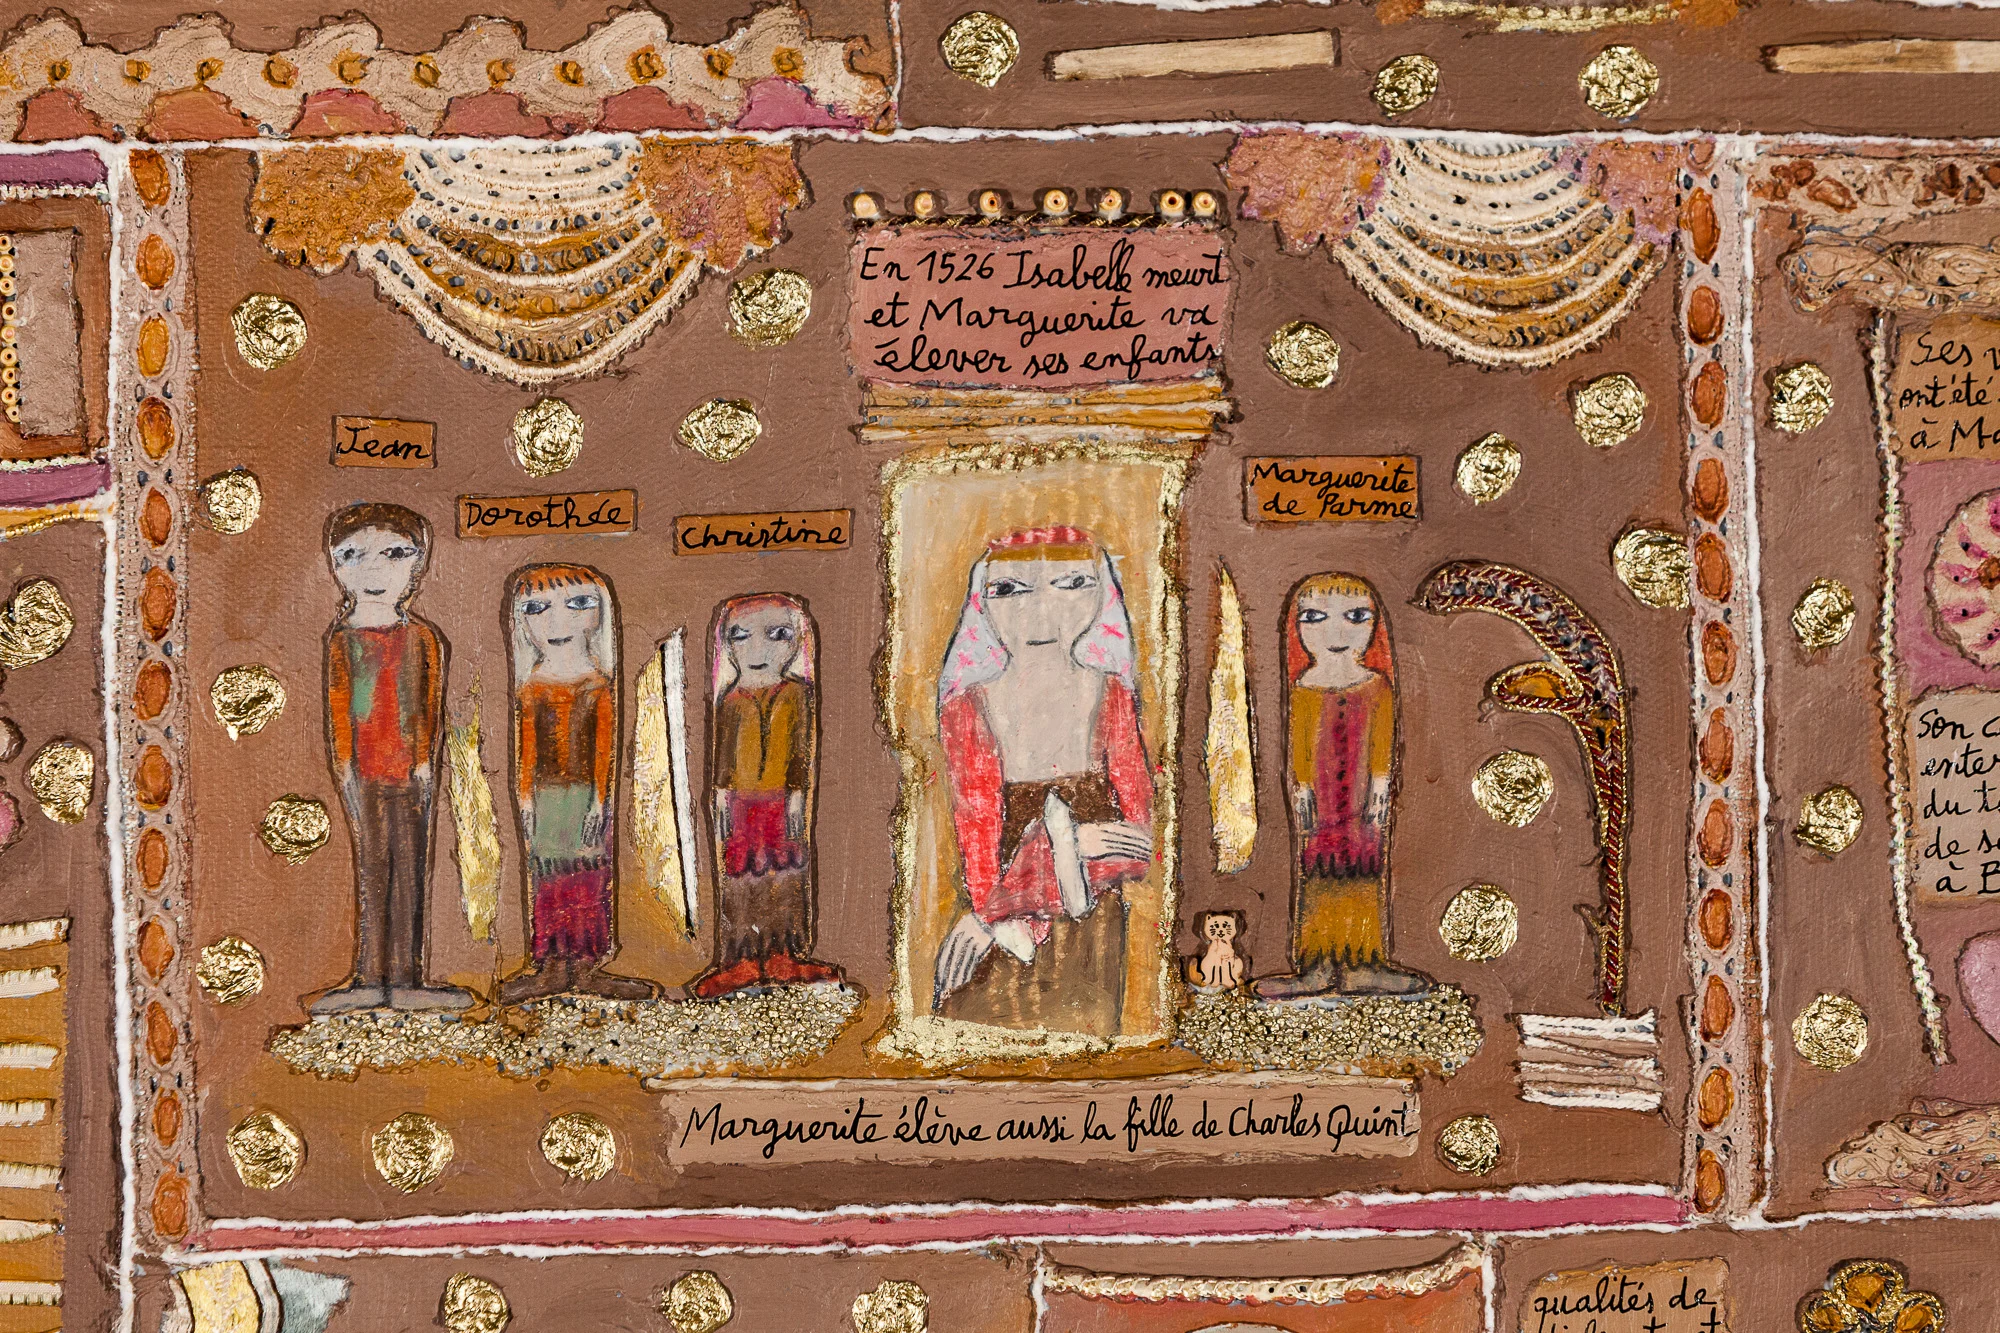 En 1526 Isabelle meurt
et Marguerite va
élever ses enfants
Jean
Dorothée
Christine
Marguerite
de Parme
Marguerite élève aussi la fille de Charles Quint
Ses
ont été
à
Son
du
de
à
qualités de